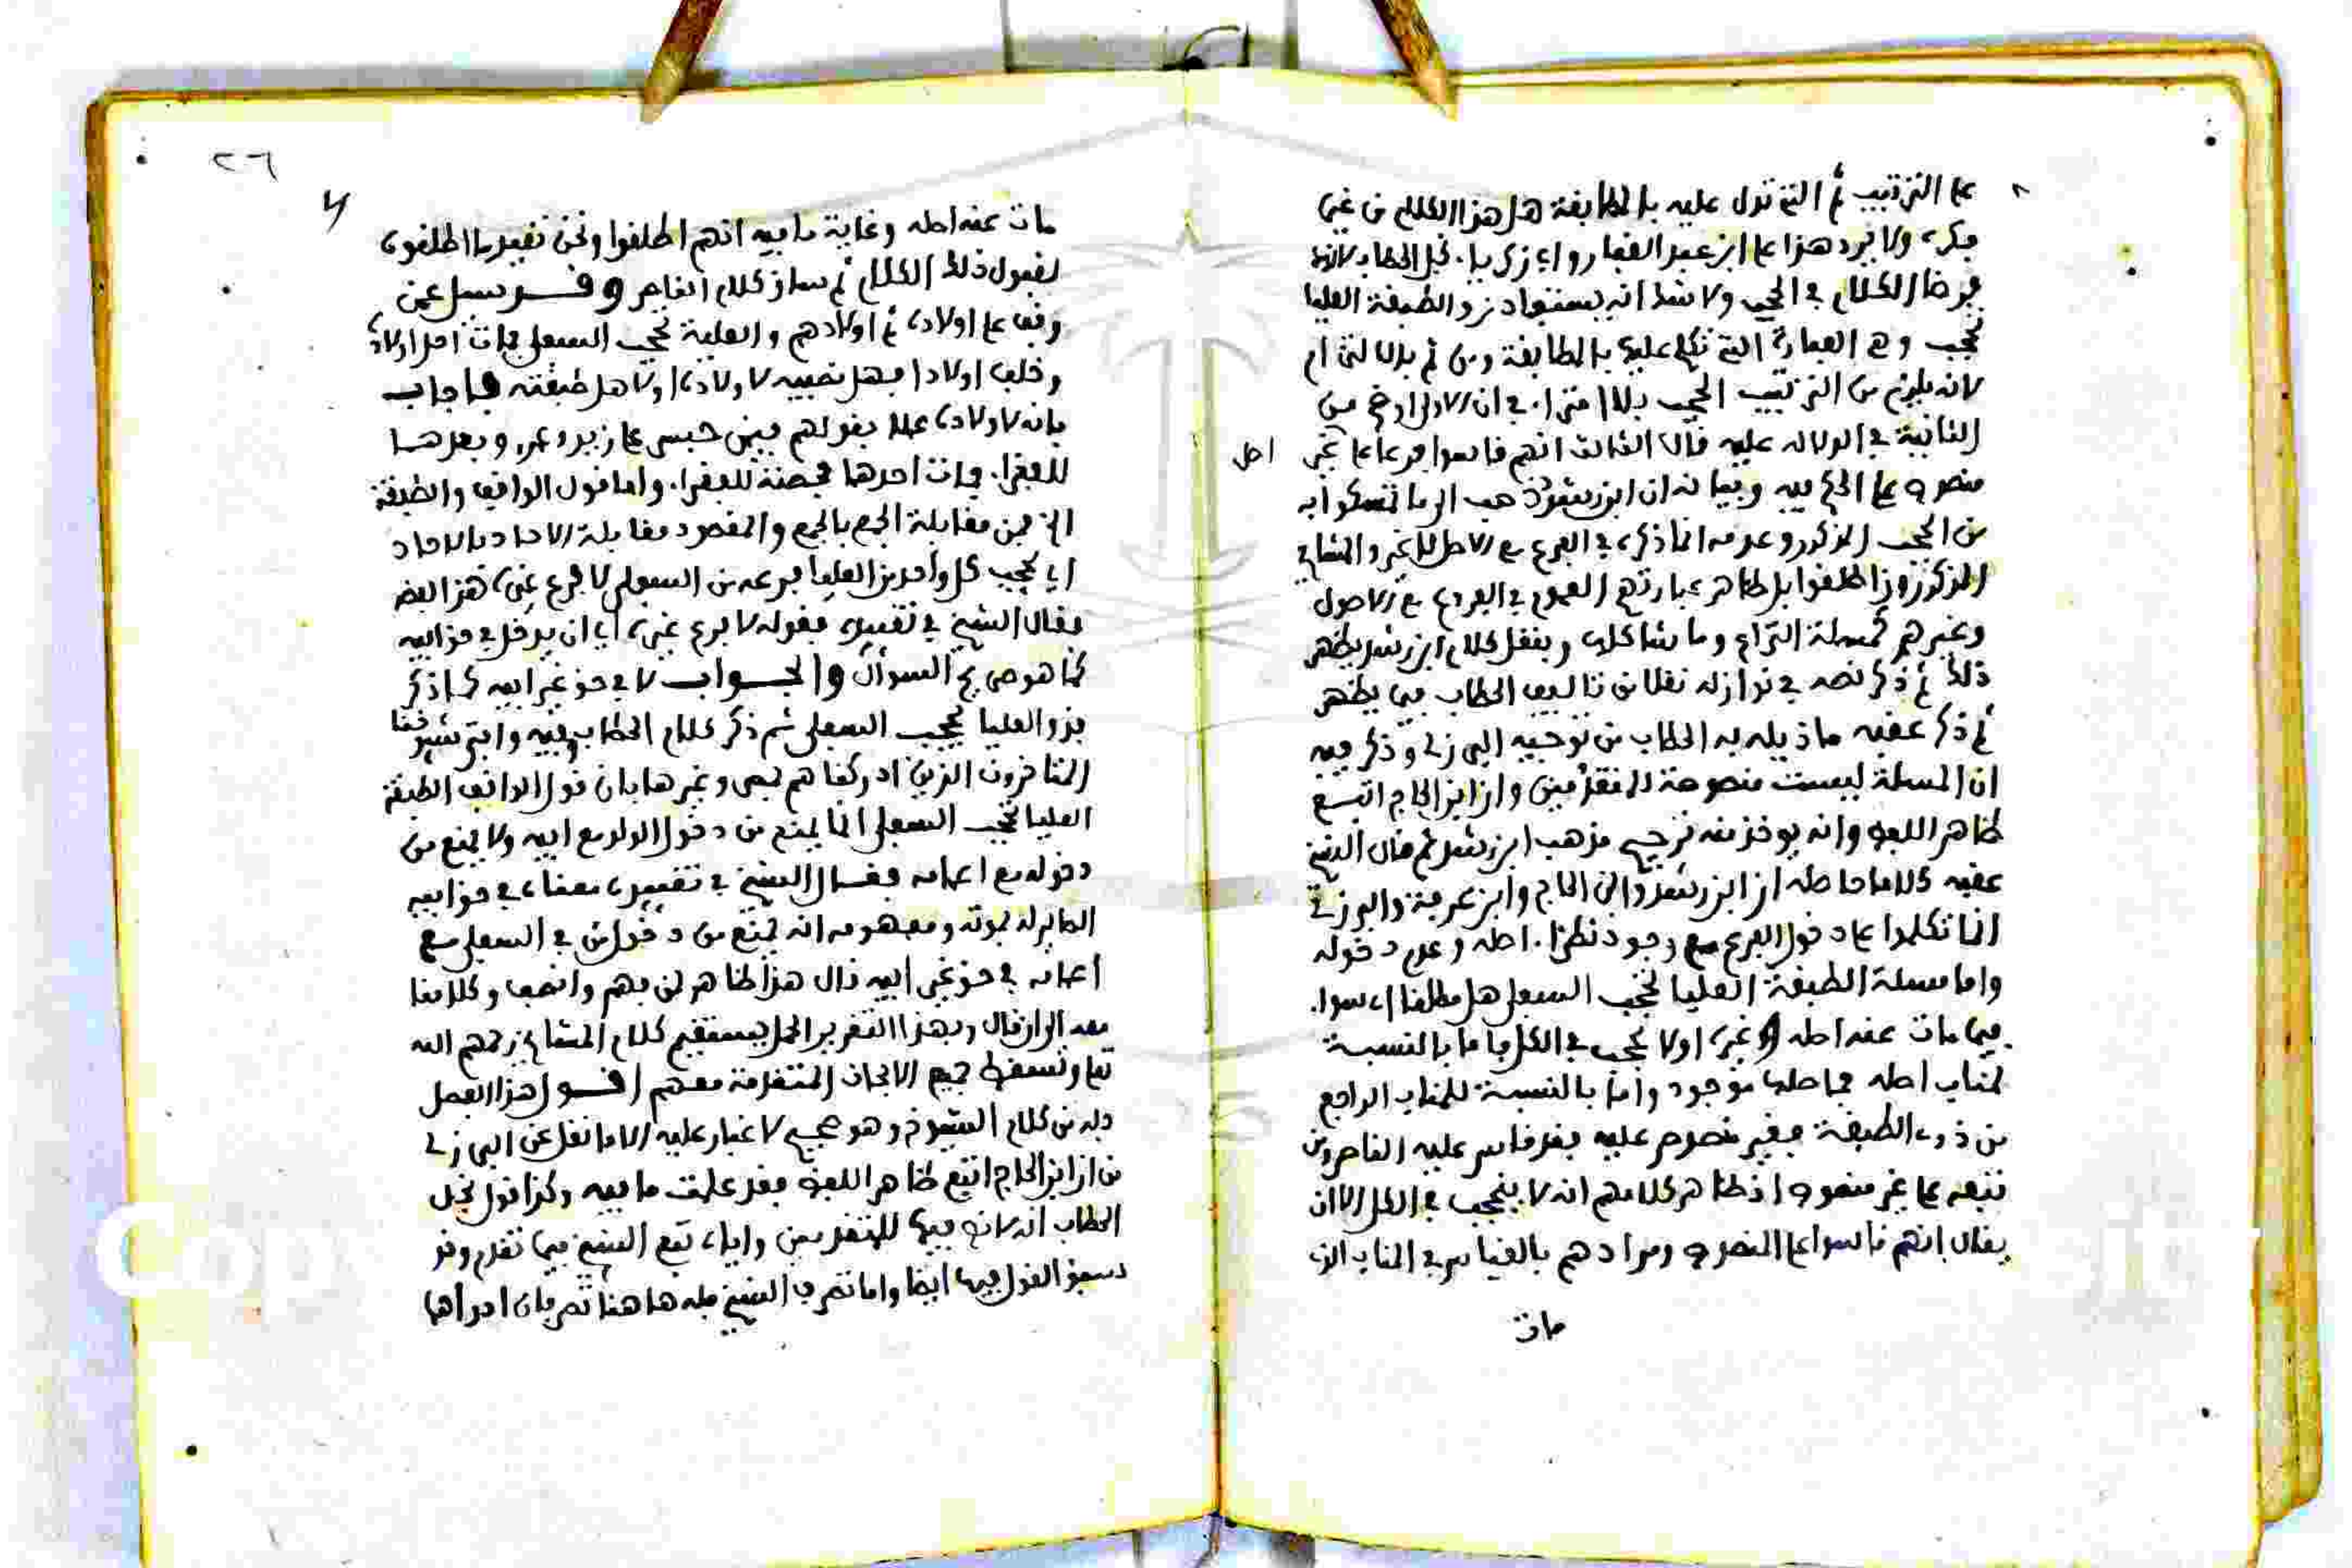 على الترتيب ثم التي تدل عليه بالمطابقة هل هذا الكلام من غير
فكر ولا يرد هذا على ابن عبد الغفار واي زكريا نجل الحطاب لانه
فرضا الكلام في الحجب ولا شك انه يستفاد من الطبقة العليا
تحجب وهي العبارة التي تكلم عليها بالمطابقة ومن ثم بالالتزام
لانه يلزم من الترتيب الحجب بلا امترا في ان الاولى اوضح من
الثانية في الدلالة عليه قال الثالث انهم قاسوا فرعا على غير
اصل
منصوص على الحكم فيه وبيانه ان ابن رشد ذهب الى ما تمسكوا به
من الحجب المذكور وعدمه انما ذكره في الفرع مع الاصل لا غير والمشايخ
المذكورون اطلقوا بل ظاهر عبارتهم العموم في الفروع مع الاصول
وغيرهم كمسلة النزاع وما شاكلها وبنقل كلام ابن رشد يظهر
ذلك ثم ذكر نصه في نوازله نقلا من تاليف الحطاب فيما يظهر
ثم ذكر عقبه ما ذيله به الحطاب من توجيه البرزلي وذكر فيه
ان المسلة ليست منصوصة للمتقدمين وان ابن الحاج اتبع
ظاهر اللفظ وانه يوخذ منه ترجيح مذهب ابن رشد ثم قال الشيخ
عقبه كلاما حاصله ان ابن رشد وابن الحاج وابن عرفة والبرزلي
انما تكلموا على دخول الفرع مع وجود نظرا اصله وعدم دخوله
واما مسلة الطبقة العليا تحجب السفلى هل مطلقا اي سوا
فيما مات عنه اصله او غيره اولا تحجب في الكل فاما بالنسبة
لمناب اصله فاصلها موجود واما بالنسبة للمناب الراجع
من ذوي الطبقة فغير منصوص عليه فقد قاس عليه القاصرون
تتبعه على غير منصوص اذ ظاهر كلامهم انه لا ينحجب في الكل الا ان
يقال انهم قاسوا على المنصوص ومرادهم بالقياس في المناب الذي
مات
٢٦
مات عنه اصله وغاية ما فيه انهم اطلقوا ونحن نقيد ما اطلقوه
لقبول ذلك الكلام ثم ساق كلام الناصر وقد سيل عمن
وقف على اولاده ثم اولادهم والعلية تحجب السفلى فمات احد اولاده
وخلف اولادا فهل نصيبه لاولاده او لاهل طبقته فاجاب
بانه لاولاده عملا بقولهم فيمن حبس على زيد وعمرو وبعدهما
للفقرا فمات احدهما فحصته للفقرا واما قول الواقف والطبقة
الخ فمن مقابلة الجمع بالجمع والمقصود مقابلة الاحاد بالاحاد
اي تحجب كل واحد من العليا فرعه من السفلى لا فرع غيره هذا نصه
فقال الشيخ في تقييده فقوله لا فرع غيره اي ان يدخل في حق ابيه
كما هو صريح السوال والجواب لا في حق غير ابيه كما ذكر
فذو العليا يحجب السفلى ثم ذكر كلام الحطاب وفيه وافتى شيوخنا
المتاخرون الذين ادركناهم بمصر وغيرها بان قول الواقف الطبقة
العليا تحجب السفلى انما يمنع من دخول الولد مع ابيه ولا يمنع من
دخوله مع اعمامه فقال الشيخ في تقييده معناه في حق ابيه
الصاير له بموته ومفهومه انه يمنع من دخول من في السفلى مع
اعمامه في حق غير ابيه قال هذا ظاهر لمن فهم وانصف وكلامنا
معه الى ان قال وبهذا التقرير الحمل يستقيم كلام المشايخ رحمهم الله
تعالى وتسقط جميع الابحاث المتقدمة معهم اقول هذا الفصل
كله من كلام الشيوخ وهو صحيح لا غبار عليه الا ما نقل عن البرزلي
من ان ابن الحاج اتبع ظاهر اللفظ فقد علمت ما فيه وكذا قول نجل
الحطاب انه لا نص فيها للمتقدمين واياه تبع الشيخ فيما تقدم وقد
سبق القول فيها ايضا واما تصرف الشيخ فله ها هنا تصرفان احداهما